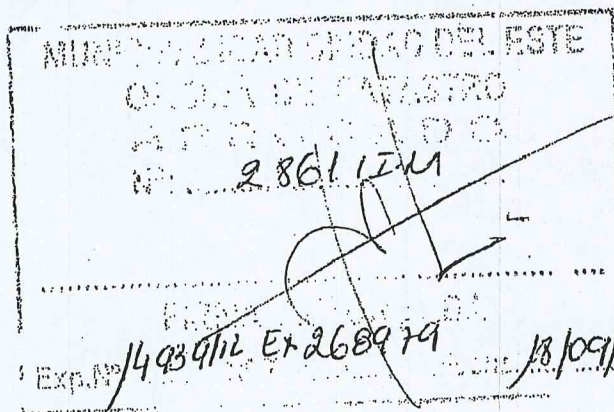 MUNICIPALIDAD CIUDAD DEL ESTE
OFICINA DE CATASTRO
APROBADO
Nº: 2861 I.M
Exp.Nº 14939/12 Ex 268979 18/09/